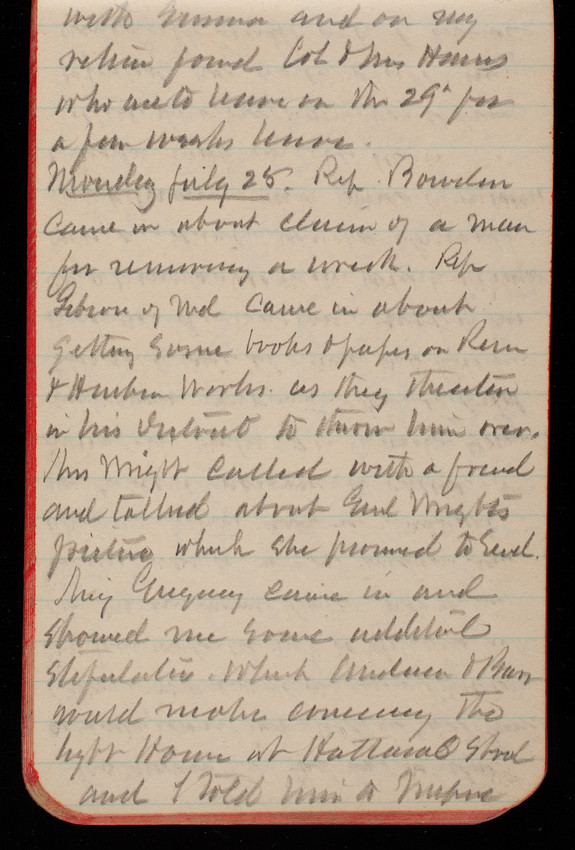 with Emma and on my
return found Col & Mrs Harris
who are to leave on the 29" for
a few weeks leave.
Monday July 25. Rep. Bowden
came in about claim of a man
for removing a wreck. Rep
Gibson of Md came in about
getting some books & papers on River
& Harbor Works. as they threaten
in his District to throw him over.
Mrs Wright called with a friend
and talked about Genl Wright's
picture which she promised to send.
Maj Gregory came in and
showed me some additional
stipulation. which Anderson & Barr
would make concerning the
light House at Hatteras Shoal
and I told him to